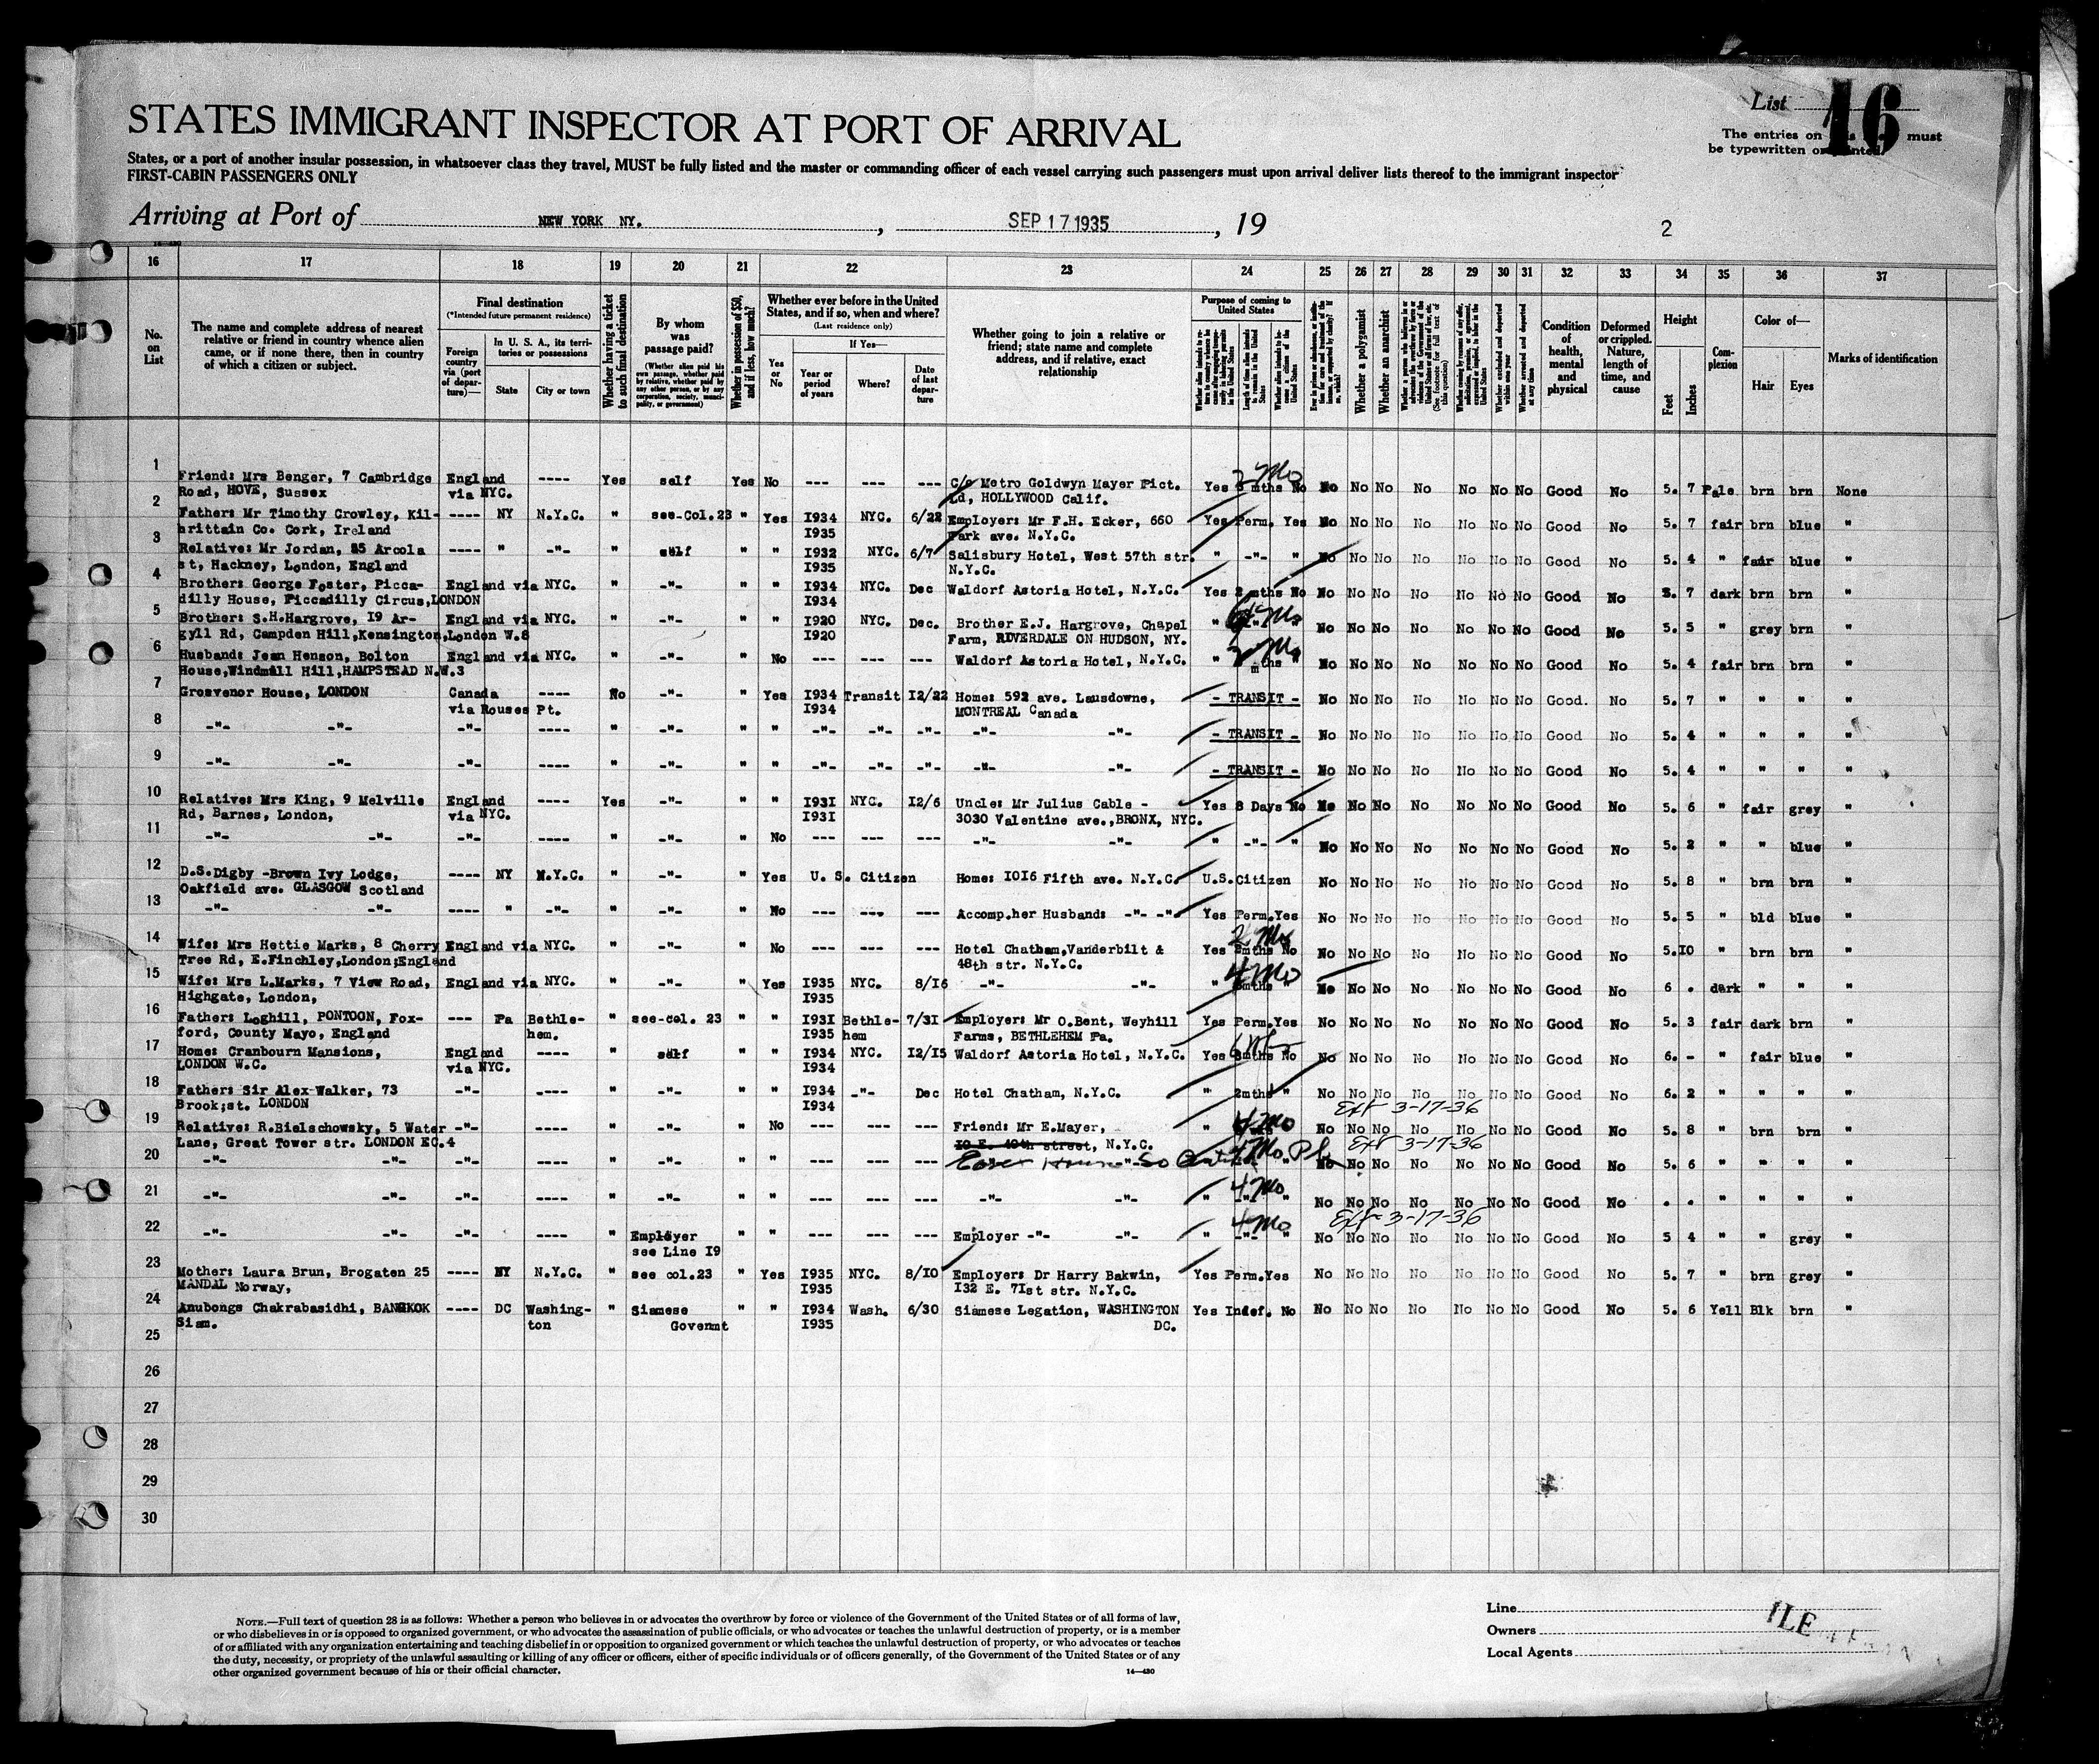 List 16
STATES IMMIGRANT INSPECTOR AT PORT OF ARRIVAL
The entries on must
be typewritten or
States, or a port of another insular possession, in whatsoever class they travel, MUST be fully listed and the master or commanding officer of each vessel carrying such passengers must upon arrival deliver lists thereof to the immigrant inspector
FIRST-CABIN PASSENGERS ONLY
Arriving at Port of NEW YORK NY. , SEP 17 1935 , 19 2
16 17 18 19 20 21 22 23 24 25 26 27 28 29 30 31 32 33 34 35 36 37
No. on List
The name and complete address of nearest relative or friend in country whence alien came, or if none there, then in country of which a citizen or subject.
Final destination
(*Intended future permanent residence)
Foreign country via (port of departure)—
In U. S. A., its territories or possessions
State City or town
Whether having a ticket to such final destination
By whom was passage paid?
(Whether alien paid his own passage, whether paid by relative, whether paid by any other person, or by any corporation, society, municipality, or government)
Whether in possession of $50, and if less, how much?
Whether ever before in the United States, and if so, when and where?
(Last residence only)
Yes or No
If Yes—
Year or period of years Where? Date of last departure
Whether going to join a relative or friend; state name and complete address, and if relative, exact relationship
Purpose of coming to United States
Length of time alien intends to remain in the United States
Whether alien intends to become a citizen of the United States
Whether a polygamist
Whether an anarchist
Whether excluded and deported within one year
Whether arrested and deported at any time
Condition of health, mental and physical
Deformed or crippled. Nature, length of time, and cause
Height
Feet Inches
Complexion
Color of—
Hair Eyes
Marks of identification
1 Friend: Mrs Benger, 7 Cambridge England ---- Yes self Yes No --- --- --- C/o Metro Goldwyn Mayer Pict. Yes mths No No No No No No No No Good No 5. 7 Pale brn brn None
Road, HOVE, Sussex via NYC. Ld, HOLLYWOOD Calif.
2 Father: Mr Timothy Crowley, Kil- ---- NY N.Y.C. " see-Col.23 " Yes I934 NYC. 6/22 Employer: Mr F.H. Ecker, 660 Yes Perm. Yes No No No No No No No Good No 5. 7 fair brn blue "
brittain Co. Cork, Ireland I935 Park ave. N.Y.C.
3 Relative: Mr Jordan, 25 Arcola ---- " -"- " self " " I932 NYC. 6/7 Salisbury Hotel, West 57th str. " -"- " No No No No No No No Good No 5. 4 " fair blue "
st, Hackney, London, England I935 N.Y.C.
4 Brother: George Foster, Picca- England via NYC. " -"- " " I934 NYC. Dec Waldorf Astoria Hotel, N.Y.C. Yes 2 mths No No No No No No No No Good No 5. 7 dark brn brn "
dilly House, Piccadilly Circus,LONDON I934
5 Brother: S.H.Hargrove, I9 Ar- England via NYC. " -"- " " I920 NYC. Dec. Brother E.J. Hargrove, Chapel " 6 Mo " No No No No No No No Good No 5. 5 " grey brn "
gyll Rd, Campden Hill,Kensington,London W.8 I920 Farm, RIVERDALE ON HUDSON, NY.
6 Husband: Jean Henson, Bolton England via NYC. " -"- " No --- --- --- Waldorf Astoria Hotel, N.Y.C. " mths " No No No No No No No Good No 5. 4 fair brn brn "
House,Windmill Hill,HAMPSTEAD N.W.3
7 Grosvenor House, LONDON Canada ---- No -"- " Yes I934 Transit I2/22 Home: 592 ave. Lansdowne, - TRANSIT - No No No No No No No Good. No 5. 7 " " " "
via Rouses Pt. I934 MONTREAL Canada
8 -"- -"- -"- ---- " -"- " " -"- -"- -"- -"- -"- - TRANSIT - No No No No No No No Good No 5. 4 " " " "
9 -"- -"- -"- ---- " -"- " " -"- -"- -"- -"- -"- - TRANSIT - No No No No No No No Good No 5. 4 " " " "
10 Relative: Mrs King, 9 Melville England ---- Yes -"- " " I93I NYC. I2/6 Uncle: Mr Julius Cable - Yes 8 Days No No No No No No No No Good No 5. 6 " fair grey "
Rd, Barnes, London, via NYC. I93I 3030 Valentine ave.,BRONX, NYC.
11 -"- -"- -"- ---- " -"- " No --- --- --- -"- -"- " -"- " No No No No No No No Good No 5. 2 " " blue "
12 D.S.Digby -Brown Ivy Lodge, ---- NY N.Y.C. " -"- " Yes U. S. Citizen Home: I0I6 Fifth ave. N.Y.C. U.S.Citizen No No No No No No No Good No 5. 8 " brn brn "
Oakfield ave. GLASGOW Scotland
13 -"- -"- ---- " -"- " -"- " No --- --- --- Accomp.her Husband: -"- -"- Yes Perm.Yes No No No No No No No Good No 5. 5 " bld blue "
14 Wife: Mrs Hettie Marks, 8 Cherry England via NYC. " -"- " No --- --- --- Hotel Chatham,Vanderbilt & Yes 2 Mo mths No No No No No No No No Good No 5.IO " brn brn "
Tree Rd, E.Finchley,London;England 48th str. N.Y.C.
15 Wife: Mrs L.Marks, 7 View Road, England via NYC. " -"- " Yes I935 NYC. 8/I6 -"- -"- " 4 Mo mths " No No No No No No No Good No 6 . dark " " "
Highgate, London, I935
16 Father: Loghill, PONTOON, Fox- --- Pa Bethle- " see-col. 23 " " I93I Bethle- 7/3I Employer: Mr O.Bent, Weyhill Yes Perm.Yes No No No No No No No Good No 5. 3 fair dark brn "
ford, County Mayo, England hem. I935 hem Farms, BETHLEHEM Pa.
17 Home: Cranbourn Mansions, England ---- " self " " I934 NYC. I2/I5 Waldorf Astoria Hotel, N.Y.C. Yes mths No No No No No No No No Good No 6. - " fair blue "
LONDON W.C. via NYC. I934
18 Father: Sir Alex-Walker, 73 -"- ---- " -"- " " I934 -"- Dec Hotel Chatham, N.Y.C. " 2mths " No No No No No No No Good No 6. 2 " " " "
Brook;st. LONDON I934 Ext 3-17-36
19 Relative: R.Bielschowsky, 5 Water -"- ---- " -"- " No --- --- --- Friend: Mr E.Mayer, " 4 Mo No No No No No No No Good No 5. 8 " brn brn "
Lane, Great Tower str. LONDON EC.4 I0 E. 40th street, N.Y.C. Ext 3-17-36
20 -"- -"- -"- ---- " -"- " " --- --- --- Essex House So 4 Mo No No No No No No No Good No 5. 6 " " " "
21 -"- -"- -"- ---- " -"- " " --- --- --- -"- -"- " 4 Mo " No No No No No No No Good No . . " " " "
Ext 3-17-36
22 -"- -"- -"- ---- " Employer " " --- --- --- Employer -"- -"- " 4 Mo -"- " No No No No No No No Good No 5 4 " " grey "
see Line I9
23 Mother: Laura Brun, Brogaten 25 ---- NY N.Y.C. " see col.23 " Yes I935 NYC. 8/I0 Employer: Dr Harry Bakwin, Yes Perm.Yes No No No No No No No Good No 5. 7 " brn grey "
MANDAL Norway, I935 I32 E. 71st str. N.Y.C.
24 Anubongs Chakrabasidhi, BANGKOK ---- DC Washing- " Siamese " " I934 Wash. 6/30 Siamese Legation, WASHINGTON Yes Indef. No No No No No No No No Good No 5. 6 Yell Blk brn "
Siam. ton Govermt I935 DC.
25
26
27
28
29
30
NOTE.—Full text of question 28 is as follows: Whether a person who believes in or advocates the overthrow by force or violence of the Government of the United States or of all forms of law,
or who disbelieves in or is opposed to organized government, or who advocates the assassination of public officials, or who advocates or teaches the unlawful destruction of property, or is a member
of or affiliated with any organization entertaining and teaching disbelief in or opposition to organized government or which teaches the unlawful destruction of property, or who advocates or teaches
the duty, necessity, or propriety of the unlawful assaulting or killing of any officer or officers, either of specific individuals or of officers generally, of the Government of the United States or of any
other organized government because of his or their official character.
14—430
Line
Owners
Local Agents
ILE